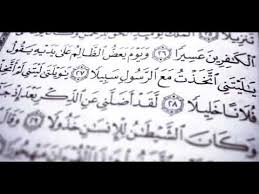 تَنزِيلًا
ٱلْكَٰفِرِينَ عَسِيرًا ٢٦ وَيَوْمَ يَعَضُّ ٱلظَّالِمُ عَلَىٰ يَدَيْهِ يَقُولُ
يَٰلَيْتَنِى ٱتَّخَذْتُ مَعَ ٱلرَّسُولِ سَبِيلًا ٢٧ يَٰوَيْلَتَىٰ لَيْتَنِى لَمْ
فُلَانًا خَلِيلًا ٢٨ لَّقَدْ أَضَلَّنِى عَنِ ٱلذِّكْرِ بَعْدَ إِذْ
وَكَانَ ٱلشَّيْطَٰنُ لِلْإِنسَٰنِ خَذُولًا ٢٩ وَقَالَ